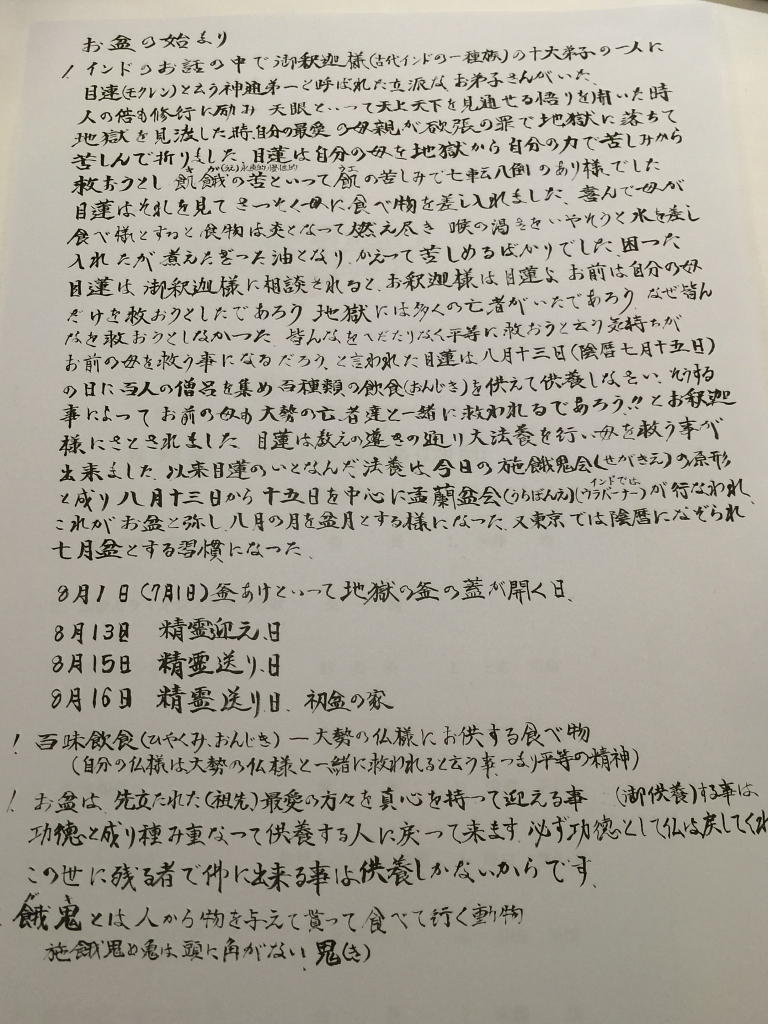 お盆の始まり
! インドのお話の中で御釈迦様(古代インドの一種族)の十大弟子の一人に
目連(モクレン)と云う神通第一と呼ばれた立派なお弟子さんがいた、
人の倍も修行に励み 天眼といって天上天下を見通せる悟りを開いた時
地獄を見渡した時、自分の最愛の母親が欲張の罪で地獄に落ちて
苦しんで折りました、目蓮は自分の母を地獄から自分の力で苦しみから
救おうとし 飢餓の苦といって飢の苦しみで七転八倒のあり様でした
目蓮はそれを見てさっそく母に食べ物を差し入れました、喜んで母が
食べ様とすると食物は炎となって燃え尽き 喉の渇きをいやそうと水を差し
入れたが煮えたぎった油となり、かえって苦しめるばかりでした、困った
目蓮は 御釈迦様に相談されると、お釈迦様は目蓮よ お前は自分の母
だけを救おうとしたであろう 地獄には多くの亡者がいたであろう、なぜ皆ん
なを救おうとしなかった、皆んなをへだたりなく平等に救おうと云う気持ちが
お前の母を救う事になるだろう、と言われた目蓮は八月十三日(陰暦七月十五日)
の日に百人の僧呂を集め百種類の飲食(おんじき)を供えて供養しなさい、そうする
事によってお前の母も大勢の亡者達と一緒に救われるであろう!!とお釈迦
様にさとされました 目蓮は教えの導きの通り大法養を行い母を救う事が
出来ました、以来目蓮のいとなんだ法養は、今日の施餓鬼会(せがきえ)の原形
と成り八月十三日から十五日を中心に盂蘭盆会(うらぼんえ)(インドではウラバーナー)が行なわれ
これがお盆と弥し、八月の月を盆月とする様になった、又東京では陰暦になぞられ
七月盆とする習慣になった、
8月1日(7月1日)釜あけといって地獄の釜の蓋が開く日、
8月13日 精霊迎え、日
8月15日 精霊送り、日
8月16日 精霊送り日、初盆の家
! 百味飲食(ひやくみ、おんじき) 一大勢の仏様にお供する食べ物
(自分の仏様は大勢の仏様と一緒に救われると云う事、つまり平等の精神)
! お盆は、先立たれた(祖先)最愛の方々を真心を持って迎える事 (御供養)する事は
功徳と成り積み重なって供養する人に戻って来ます、必ず功徳として仏は戻してくれ
この世に残る者で仲に出来る事は供養しかないからです、
餓鬼とは人から物を与えて貰って食べて行く動物
施餓鬼の鬼は頭に角がない、鬼(き)